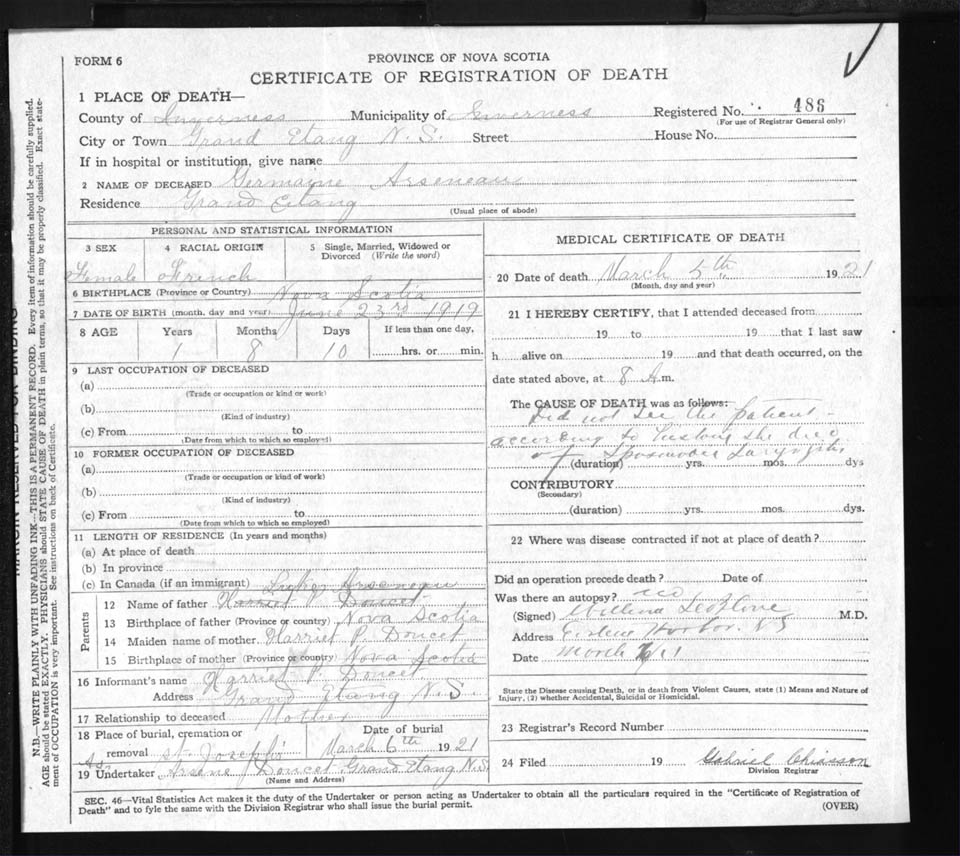 FORM 6
PROVINCE OF NOVA SCOTIA
CERTIFICATE OF REGISTRATION OF DEATH
1 PLACE OF DEATH—
County of Inverness Municipality of Inverness Registered No. 486
(For use of Registrar General only)
City or Town Grand Etang N.S. Street House No.
If in hospital or institution, give name
2 NAME OF DECEASED Germaine Arseneau
Residence Grand Etang
(Usual place of abode)
PERSONAL AND STATISTICAL INFORMATION
3 SEX 4 RACIAL ORIGIN 5 Single, Married, Widowed or Divorced (Write the word)
Female French
6 BIRTHPLACE (Province or Country) Nova Scotia
7 DATE OF BIRTH (month, day and year) June 23rd 1919
8 AGE Years Months Days If less than one day,
1 8 10 hrs. or min.
9 LAST OCCUPATION OF DECEASED
(a)
(Trade or occupation or kind or work)
(b)
(Kind of industry)
(c) From to
(Date from which to which so employed)
10 FORMER OCCUPATION OF DECEASED
(a)
(Trade or occupation or kind of work)
(b)
(Kind of industry)
(c) From to
(Date from which to which so employed)
11 LENGTH OF RESIDENCE (In years and months)
(a) At place of death
(b) In province
(c) In Canada (if an immigrant)
Arseneau
Parents
12 Name of father Harriet P. Doucet
13 Birthplace of father (Province or country) Nova Scotia
14 Maiden name of mother Harriet P. Doucet
15 Birthplace of mother (Province or country) Nova Scotia
16 Informant's name Harriet P. Doucet
Address Grand Etang N.S.
17 Relationship to deceased Mother
18 Place of burial, cremation or removal St. Joseph's
Date of burial March 6th 1921
19 Undertaker Arsene Doucet Grand Etang N.S.
(Name and Address)
MEDICAL CERTIFICATE OF DEATH
20 Date of death March 5th 1921
(Month, day and year)
21 I HEREBY CERTIFY, that I attended deceased from
19 to 19 that I last saw
h alive on 19 and that death occurred, on the
date stated above, at 8 A m.
The CAUSE OF DEATH was as follows:
Did not see the patient -
according to history she died
of Spasmodic Laryngitis
(duration) yrs. mos. dys
CONTRIBUTORY
(Secondary)
(duration) yrs. mos. dys.
22 Where was disease contracted if not at place of death?
Did an operation precede death? Date of
Was there an autopsy? no
(Signed) M.D.
Address Harbor. N S
Date March
State the Disease causing Death, or in death from Violent Causes, state (1) Means and Nature of
Injury, (2) whether Accidental, Suicidal or Homicidal.
23 Registrar's Record Number
24 Filed 19 Gabriel Chiasson
Division Registrar
SEC. 46—Vital Statistics Act makes it the duty of the Undertaker or person acting as Undertaker to obtain all the particulars required in the "Certificate of Registration of
Death" and to fyle the same with the Division Registrar who shall issue the burial permit.
(OVER)
MARGIN RESERVED FOR BINDING
N.B.—WRITE PLAINLY WITH UNFADING INK—THIS IS A PERMANENT RECORD. Every item of information should be carefully supplied.
AGE should be stated EXACTLY. PHYSICIANS should STATE CAUSE OF DEATH in plain terms, so that it may be properly classified. Exact state-
ment of OCCUPATION is very important. See instructions on back of Certificate.